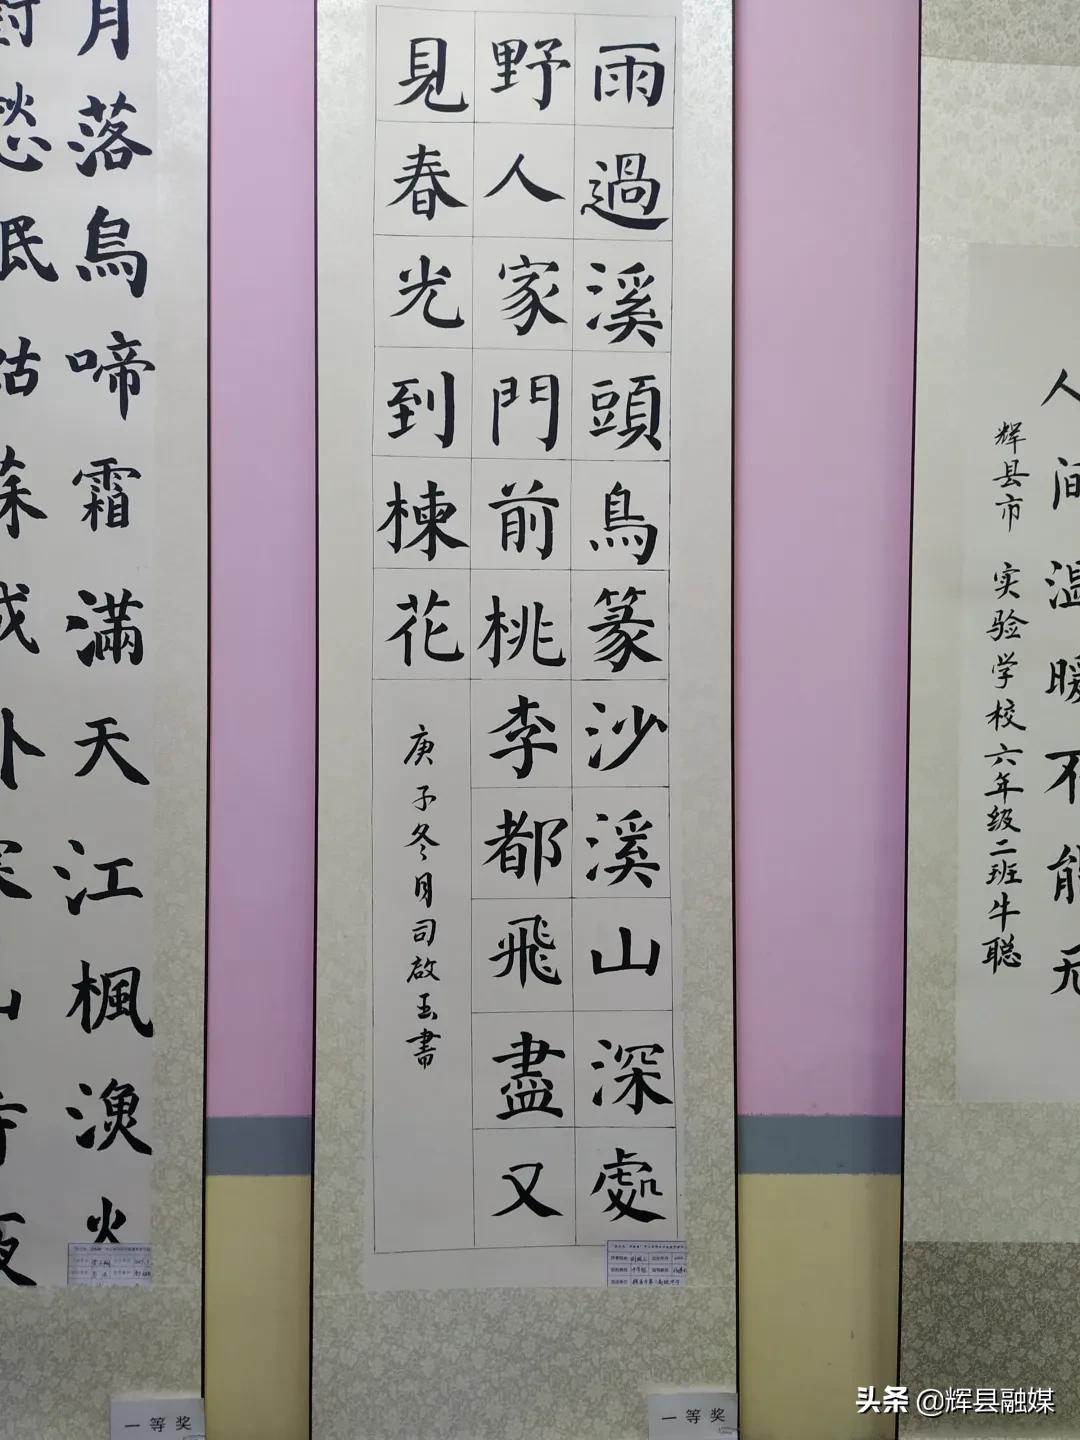 雨過溪頭鳥篆沙溪山深處
野人家門前桃李都飛盡又
見春光到楝花
庚子冬月司啟玉書
月落烏啼霜滿天江楓漁火
人间温暖不能无
辉县市 实验学校六年级二班牛聪
一等奖
一等奖
头条 @辉县融媒